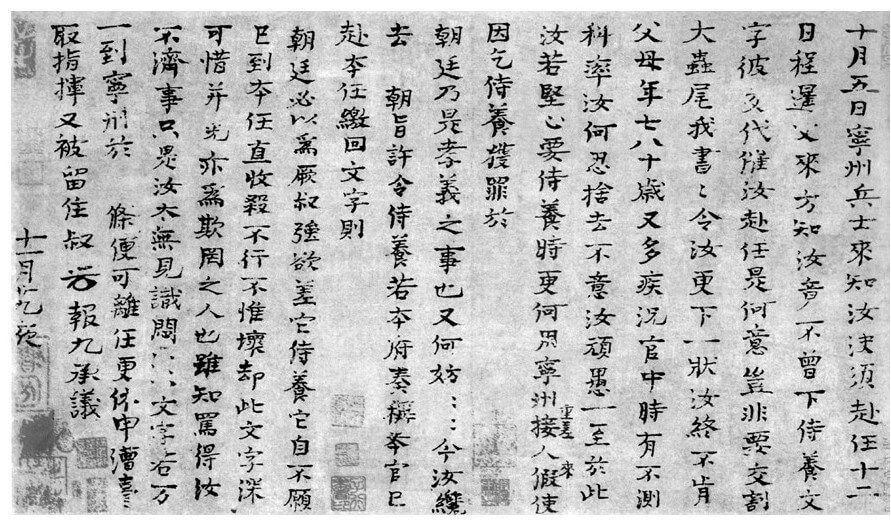 十月五日寧州兵士來知汝決須赴任十二
日程暹父來方知汝意不曾下侍養文
字彼交代催汝赴任是何意豈非要交割
大蟲尾我書〻令汝更下一狀汝終不肯
父母年七八十歲又多疾況官中時有不測
科率汝何忍捨去不意汝頑愚一至於此
汝若堅心要侍養時更何用寧州接人重差來假使
因乞侍養獲罪於
朝廷乃是孝義之事也又何妨〻〻今汝纔
去 朝旨許令侍養若本府奏稱本官已
赴本任繳回文字則
朝廷必以為厥叔強欲差它侍養它自不願
已到本任直收殺不行不惟壞却此文字深
可惜并光亦為欺罔之人也雖知罵得汝
不濟事只是汝太無見識悶〻〻文字若万
一到寧州於 條便可離任更休申
取指揮又被留住叔 報九承議
十一月